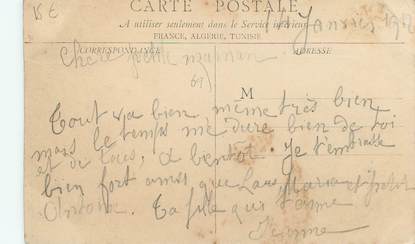 15 €
CARTE POSTALE
A utiliser seulement dans le Service intérieur
FRANCE, ALGERIE, TUNISIE
Janvier
CORRESPONDANCE
ADRESSE
Chère petite maman
69)
M
Tout va bien, même très bien
mais le temps me dure bien de toi
et de tous, à bientôt. Je t'embrasse
bien fort ainsi que Maria et
Ta fille qui t'aime
Jeanne